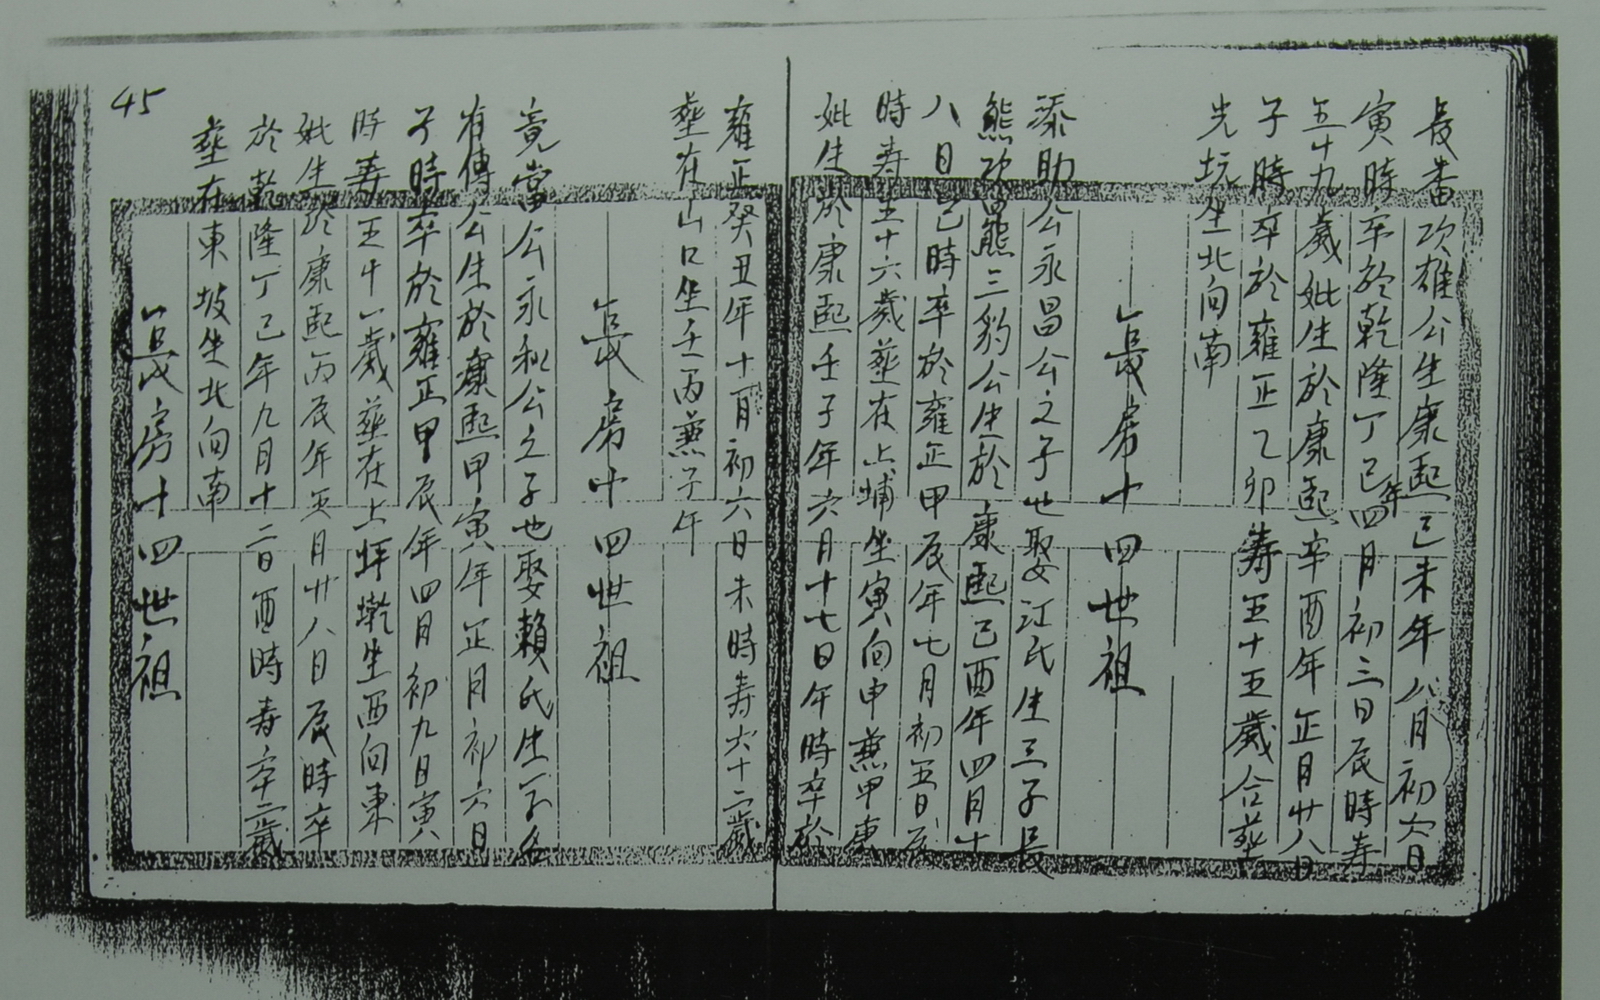 長番次雄公生康熙己未年八月初六日
寅時卒於乾隆丁巳年四月初三日辰時寿
五十九歲妣生於康熙辛酉年正月廿八日
子時卒於雍正乙卯寿五十五歲合葬
光坑坐北向南
長房十四世祖
添助公永昌公之子也娶江氏生三子長
熊次羆三豹公生於康熙己酉年四月十
八日巳時卒於雍正甲辰年七月初五日辰
時寿五十六歲葬在上埔坐寅向申兼甲庚
妣生於康熙壬子年六月十七日午時卒於
雍正癸丑年十一月初六日未時寿六十二歲
葬在山口坐壬丙兼子午
長房十四世祖
亮當公永和公之子也娶賴氏生一子名
有傳公生於康熙甲寅年正月初六日
子時卒於雍正甲辰年四月初九日寅
時寿五十一歲葬在上坪墘坐西向東
妣生於康熙丙辰年五月廿八日辰時卒
於乾隆丁巳年九月十二日酉時寿六十二歲
葬在東坡坐北向南
長房十四世祖
45